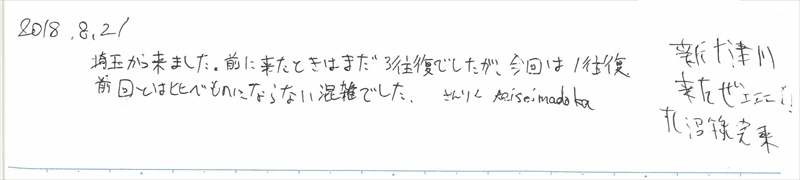 2018.8.21
埼玉から来ました。前に来たときはまだ3往復でしたが、今回は1往復
前回とは比べものにならない混雑でした。 さんりく keiseimadoka
新十津川
来たぜェェェ!!
札沼線完乗